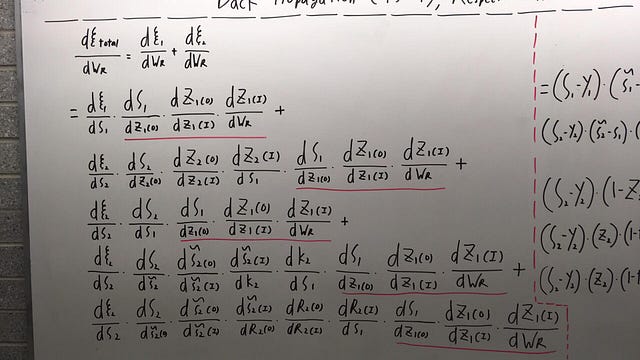 Back Propagation
dξ total / dWR = dξ1 / dWR + dξ2 / dWR
= dξ1/dS1 · dS1/dZ1(O) · dZ1(O)/dZ1(I) · dZ1(I)/dWR +
dξ2/dS2 · dS2/dZ2(O) · dZ2(O)/dZ2(I) · dZ2(I)/dS1 · dS1/dZ1(O) · dZ1(O)/dZ1(I) · dZ1(I)/dWR +
dξ2/dS2 · dS2/dS1 · dS1/dZ1(O) · dZ1(O)/dZ1(I) · dZ1(I)/dWR +
dξ2/dS2 · dS2/dS̃2 · dS̃2(O)/dS̃2(I) · dS̃2(I)/dk2 · dk2/dS1 · dS1/dZ1(O) · dZ1(O)/dZ1(I) · dZ1(I)/dWR +
dξ2/dS2 · dS2/dS̃2(O) · dS̃2(O)/dS̃2(I) · dS̃2(I)/dR2(O) · dR2(O)/dR2(I) · dR2(I)/dS1 · dS1/dZ1(O) · dZ1(O)/dZ1(I) · dZ1(I)/dWR
=(S1-Y1)·(S̃1-
(S2-Y2)·(S̃2-S1)·(
(S2-Y2)·(1-Z
(S2-Y2)·(Z2)·(1-
(S2-Y2)·(Z2)·(1-